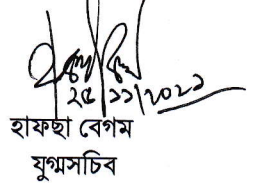 ২৫/১১/২০২১
হাফছা বেগম
যুগ্মসচিব